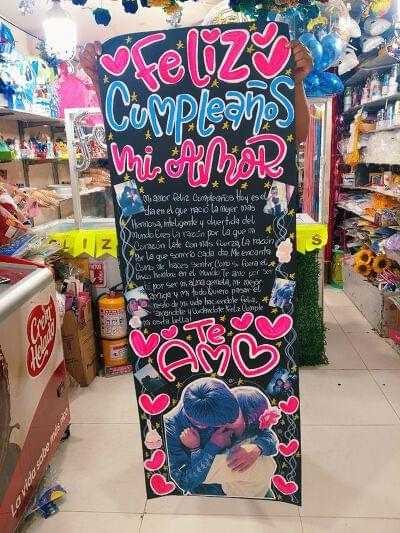 Feliz
Cumpleaños
mi AMOR
Mi amor feliz Cumpleaños Hoy es el
día en el que nació la mujer más
Hermosa, inteligente y divertida del
Mundo Eres la razón por la que mi
Corazón Late con más fuerza, La razón
Por la que sonrío cada día Me encanta
Como me haces sentir, como si fuera el
único Hombre en el mundo Te amo por ser
tú por ser mi alma gemela, mi mejor
amiga y mi todo Quiero pasar el
resto de mi vida haciéndote feliz,
amándote y cuidándote Feliz Cumple
mi osita bella!
Te
AMO
LIZ
S
Crem
Helado
La vida sabe más rico